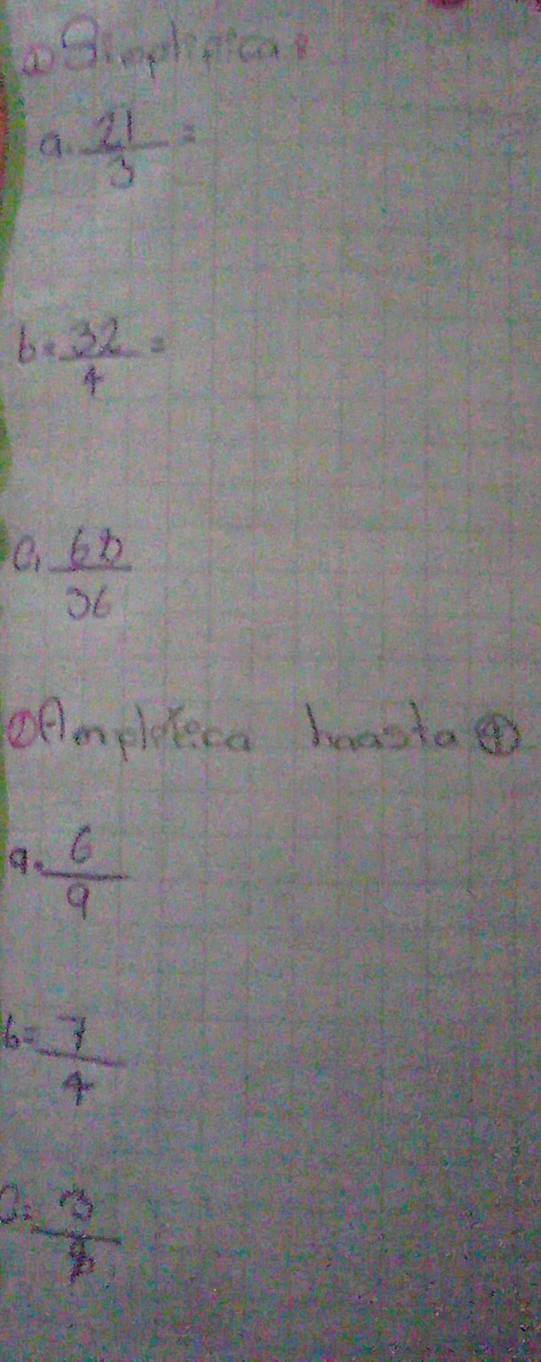 ① Simplifica:
a. 21/3 =
b = 32/4 =
c. 60/36
② Amplifica haasta ④
a. 6/9
b = 7/4
c = 3/